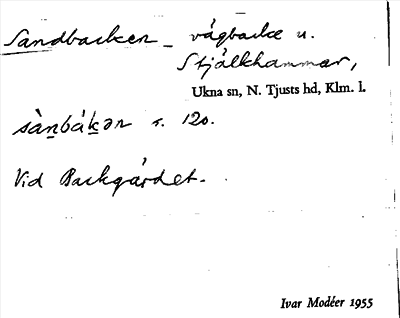 Sandbacken – vägbacke u.
Stjälkhammar,
Ukna sn, N. Tjusts hd, Klm. l.
sàn̲bák̲ən s. 120.
Vid Backgärdet.
Ivar Modéer 1955